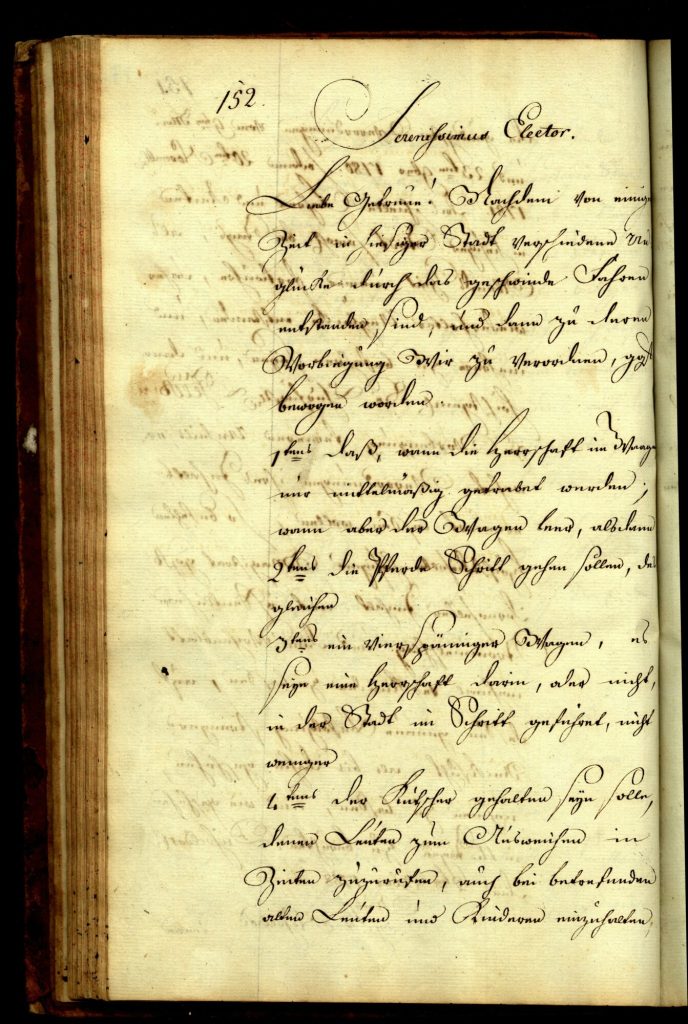 152.
Serenissimus Elector.
Liebe Getreue! Nachdem von einiger
Zeit in hiesiger Stadt verschiedene Un
glücke durch das geschwinde Fahren
entstanden sind, und dann zu deren
Vorbiegung Wir zu verordnen, ggst
bewogen worden
1tens daß, wann die Herrschaft im Waagen
nur mittelmäßig getrabet werden;
wann aber der Wagen leer, alsdann
2tens die Pferde Schritt gehen sollen, des
gleichen
3tens ein vierspänniger Wagen, es
seye eine Herrschaft darin, oder nicht,
in der Stadt im Schritt geführet, nicht
weniger
4tens der Kutscher gehalten seyn solle,
denen Leuten zum Ausweichen in
Zeiten zuzurufen, auch bei betrefenden
alten Leuten und Kinderen einzuhalten,